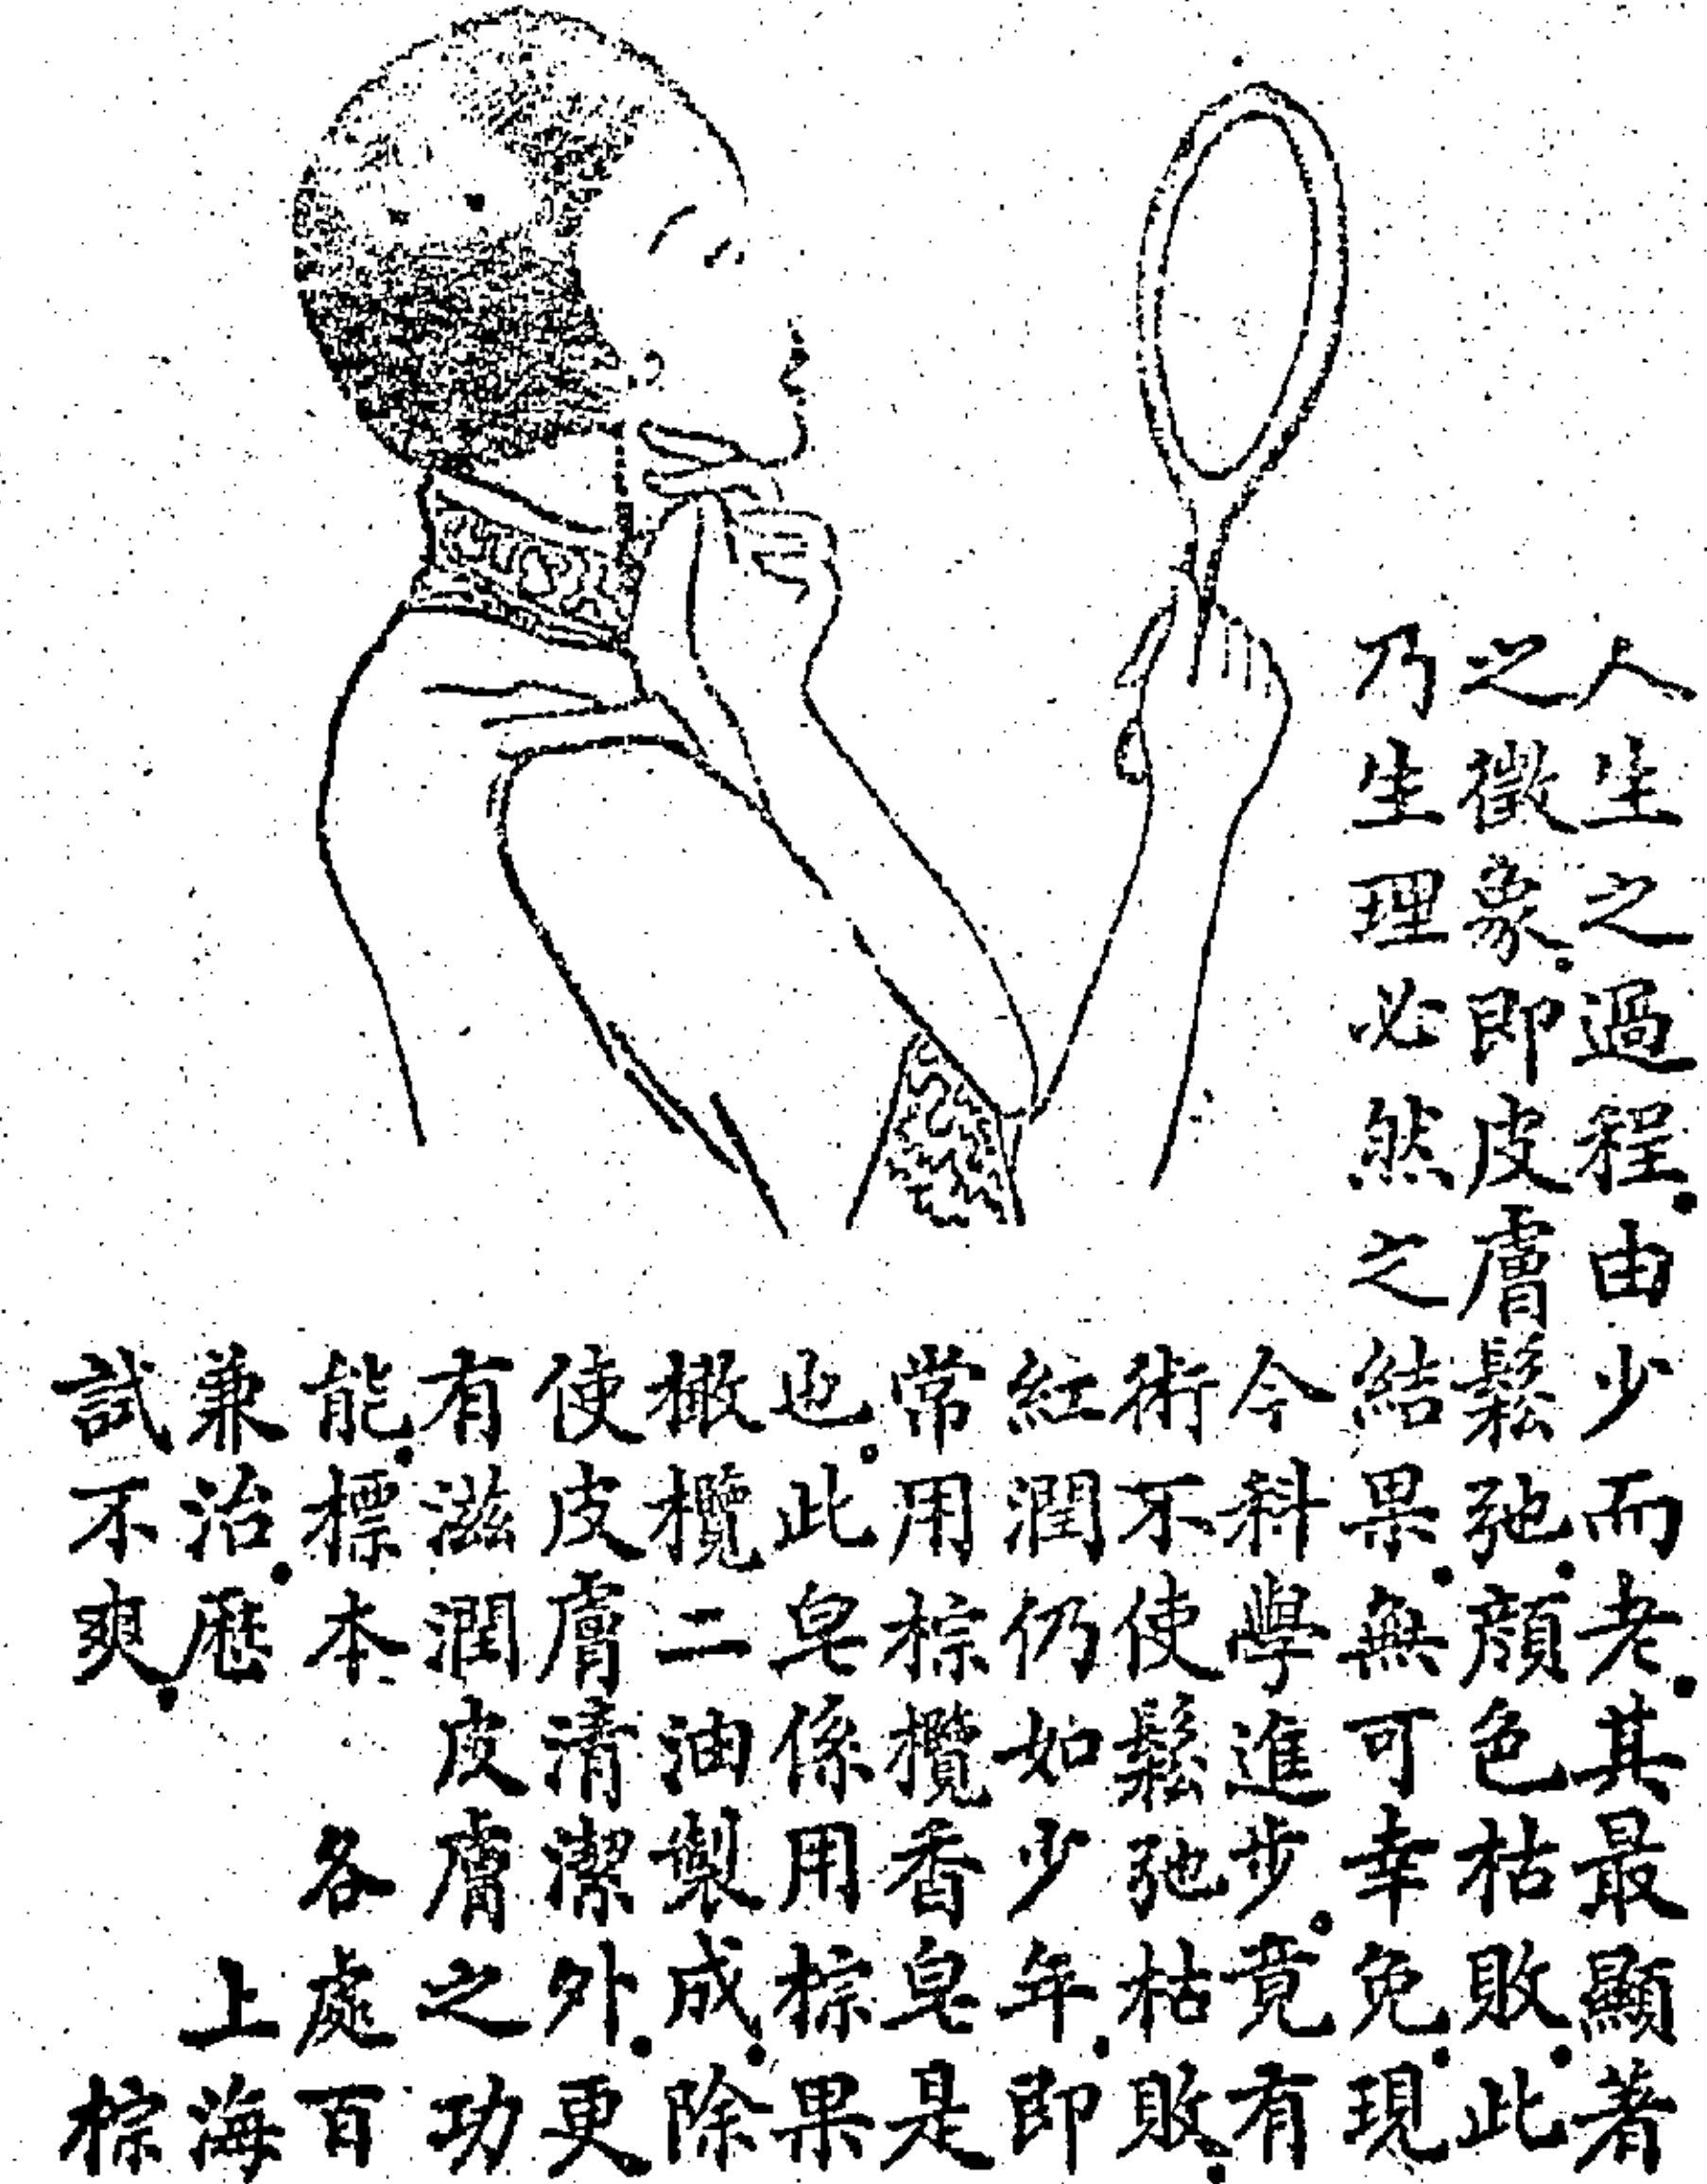 人生之過程.由少而老.其最顯著
之徵象。即皮膚鬆弛.顏色枯敗.此
乃生理必然之結果.無可幸免.現
今科學進步。竟有
術不使鬆弛枯敗.
紅潤仍如少年.即
常用棕欖香皂是
也。此皂係用棕果
橄欖二油製成.除
使皮膚清潔外.更
有滋潤皮膚之功
能.標本
兼治.歷
試不爽.
各處百
上海
棕